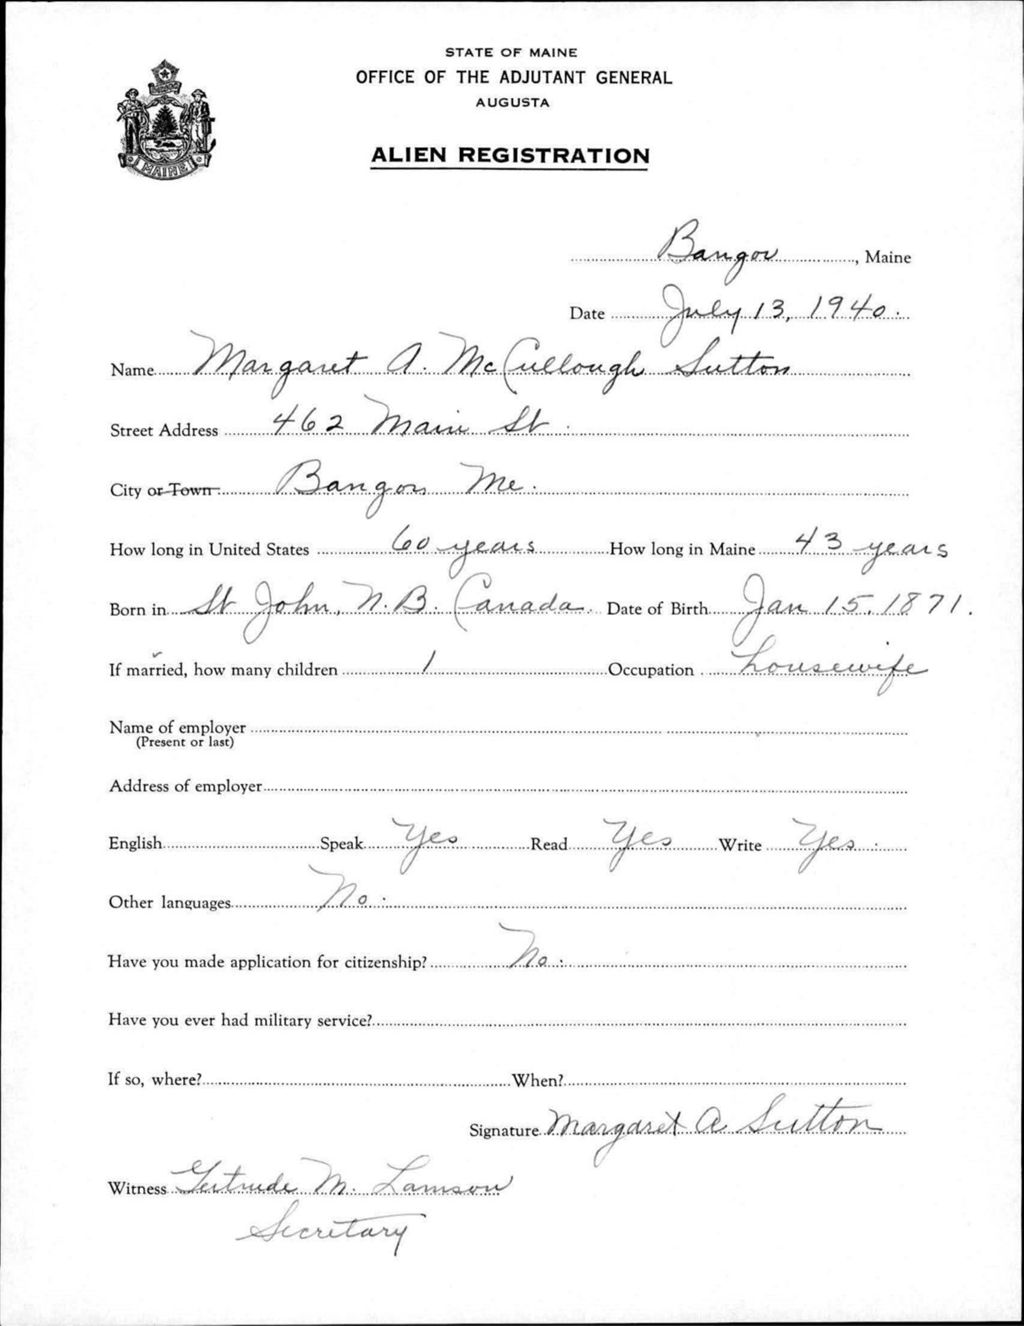 STATE OF MAINE
OFFICE OF THE ADJUTANT GENERAL
AUGUSTA
ALIEN REGISTRATION
MAINE
Bangor, Maine
Date July 13, 1940.
Name Margaret A. McCullough Sutton
Street Address 462 Main St.
City or Town Bangor, Me.
How long in United States 60 years How long in Maine 43 years
Born in St John, N.B. Canada. Date of Birth Jan 15, 1871.
If married, how many children 1 Occupation housewife
Name of employer
(Present or last)
Address of employer
English Speak Yes Read Yes Write Yes.
Other languages No.
Have you made application for citizenship? No.
Have you ever had military service?
If so, where? When?
Signature Margaret A Sutton
Witness Gertrude M. Lamson
Secretary